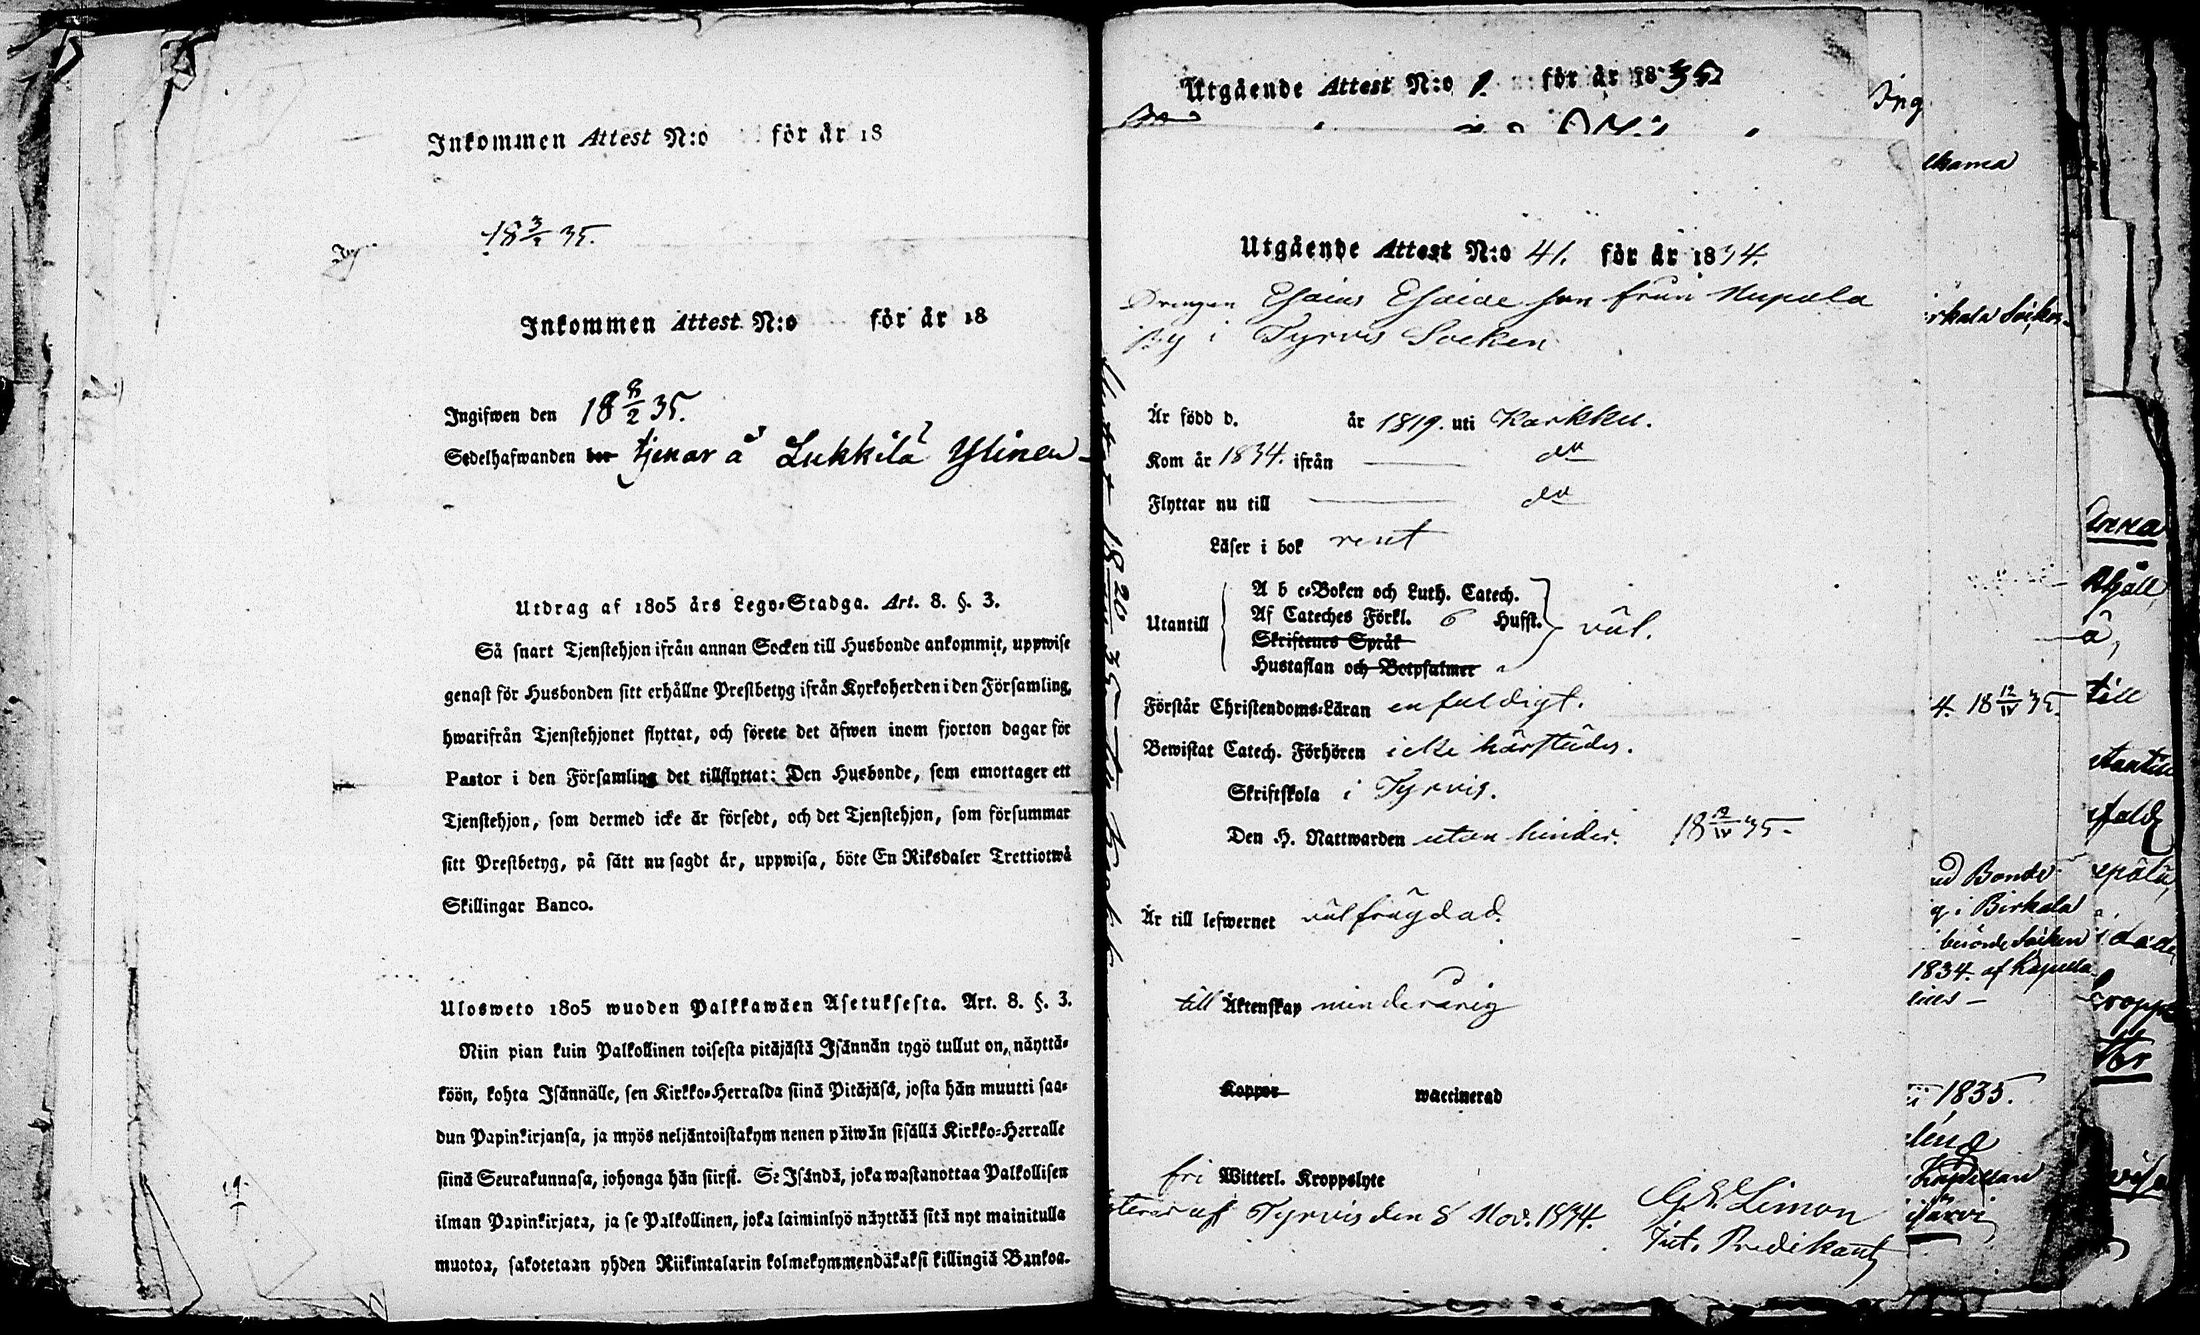 Inkommen Attest N:o för år 18
18 3/2 35.
Inkommen Attest N:o för år 18
Ingifwen den 18 8/2 35.
Sedelhafwanden bor tjenar å Lukkila Ylinen
Utdrag af 1805 års Lego-Stadga. Art. 8. §. 3.
Så snart Tjenstehjon ifrån annan Socken till Husbonde ankommit, uppwise
genast för Husbonden sitt erhållne Prestbetyg ifrån Kyrkoherden i den Församling,
hwarifrån Tjenstehjonet flyttat, och förete det äfwen inom fjorton dagar för
Pastor i den Församling det tillflyttat: Den Husbonde, som emottager ett
Tjenstehjon, som dermed icke är försedt, och det Tjenstehjon, som försummar
sitt Prestbetyg, på sätt nu sagdt är, uppwisa, böte En Riksdaler Trettiotwå
Skillingar Banco.
Ulosweto 1805 wuoden Palkkawäen Asetuksesta. Art. 8. §. 3.
Niin pian kuin Palkollinen toisesta pitäjästä Isännän tygö tullut on, näyttä-
köön, kohta Isännälle, sen Kirkko-Herralda siinä Pitäjäsä, josta hän muutti saa-
dun Papinkirjansa, ja myös neljäntoistakymnenen päiwän sisällä Kirkko-Herralle
siinä Seurakunnasa, johonga hän siirsi. Se Isändä, joka wastanottaa Palkollisen
ilman Papinkirjata, ja se Palkollinen, joka laiminlyö näyttää sitä nyt mainitulla
muotoa, sakotetaan yhden Riikintalarin kolmekymmendäkaksi killingiä Bankoa.
Utgående Attest N:o 1. för år 1835
Utgående Attest N:o 41. för år 1834.
Drengen Esaias Esaiae son från Nupala
By i Tyrvis Socken
Är född d. år 1819. uti Karkku.
Kom år 1834. ifrån do
Flyttar nu till do
Läser i bok rent
Utantill
A b c-Boken och Luth. Catech.
Af Cateches Förkl. 6 Hufst.
Skriftenes Språk
Hustaflan och Botpsalmer
väl.
Förstår Christendoms-Läran enfaldigt.
Bewistat Catech. Förhören icke härstädes.
Skriftskola i Tyrvis.
Den H. Nattwarden utan hinder. 18 12/IV 35.
Är till lefwernet välfrägdad.
till Äktenskap minderårig
Koppor waccinerad
fri Witterl. Kroppslyte
af Tyrvis den 8 Nov. 1834.
Limon
Predikant
Ing
rkala Socken
4. 18 12/IV 35.
ud Bonde
i Birkala
Socken
1834. af Kapella
1835.
Anna
till